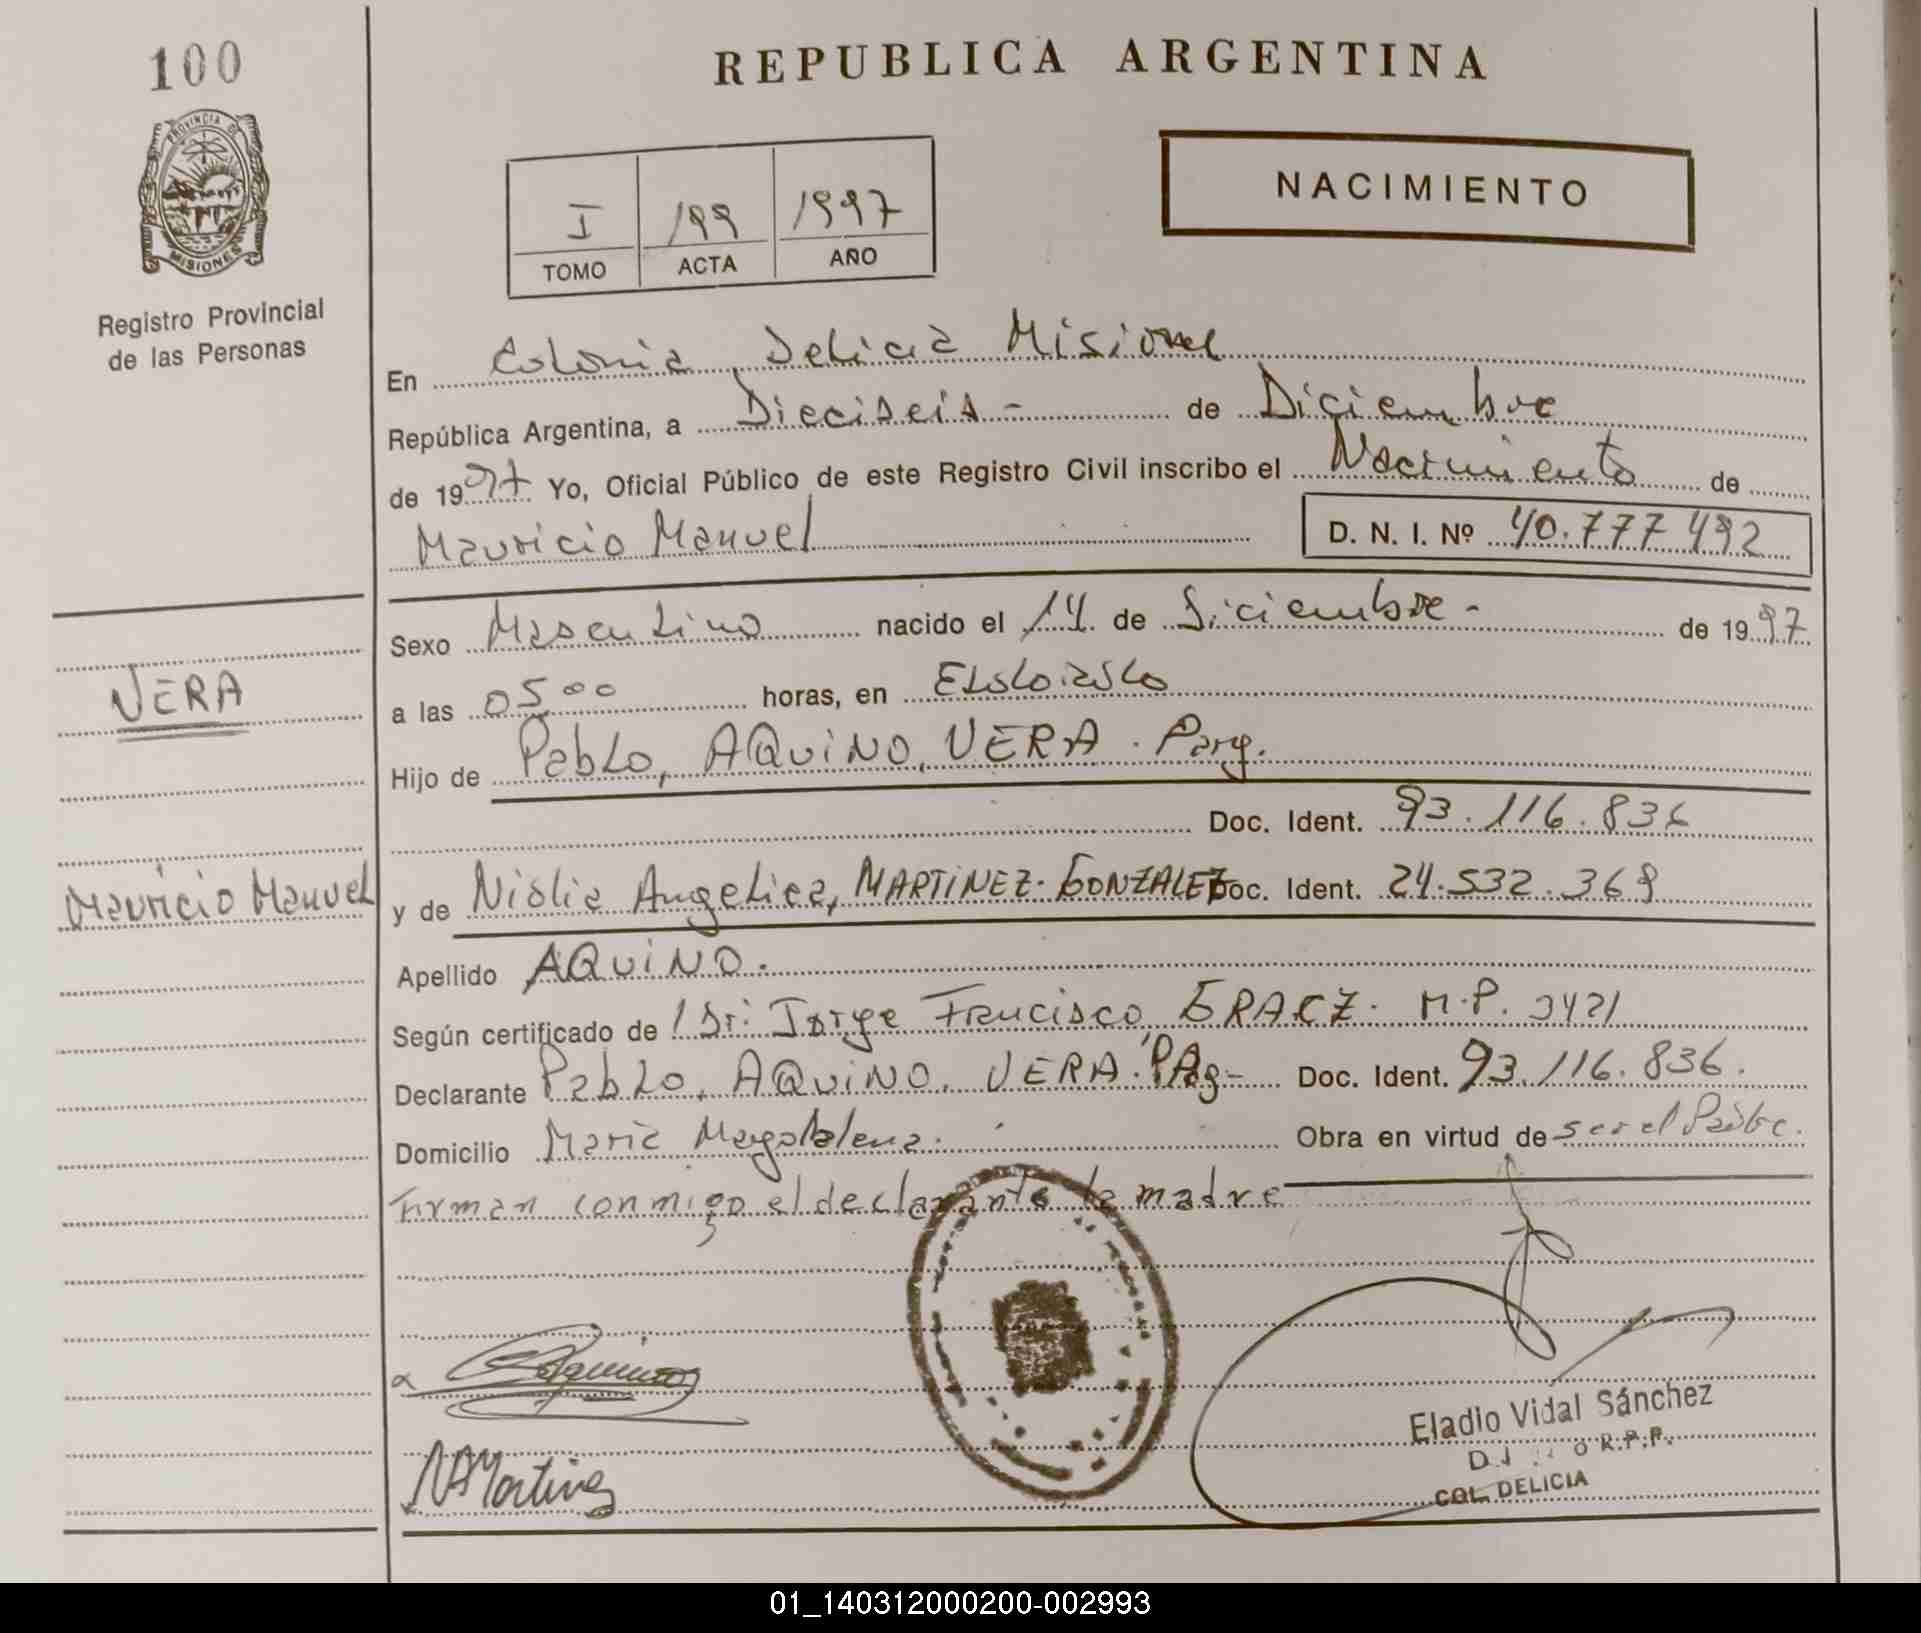 100
REPUBLICA ARGENTINA
PROVINCIA DE
MISIONES
Registro Provincial
de las Personas
NACIMIENTO
I 199 1997
TOMO ACTA AÑO
En Colonia Delicia Misiones
República Argentina, a Dieciseis - de Diciembre
de 1997 Yo, Oficial Público de este Registro Civil inscribo el Nacimiento de
Mauricio Manuel D. N. I. Nº 40.777 492
Sexo Masculino nacido el 14 de Diciembre - de 1997
a las 05 00 horas, en Eldorado
VERA
Hijo de Pablo, AQUINO, VERA . Parg.
Doc. Ident. 93.116.836
Mauricio Manuel
y de Nidia Angelica, MARTINEZ. GONZALEZ Doc. Ident. 24.532.369
Apellido AQUINO.
Según certificado de Dr: Jorge Francisco GRACZ. M.P. 3421
Declarante Pablo, AQUINO, VERA. PAg- Doc. Ident. 93.116.836.
Domicilio Maria Magdalena. Obra en virtud de ser el Padre.
Firman conmigo el declarante la madre
NAMartinez
Eladio Vidal Sánchez
R.P.P.
COL. DELICIA
01_140312000200-002993